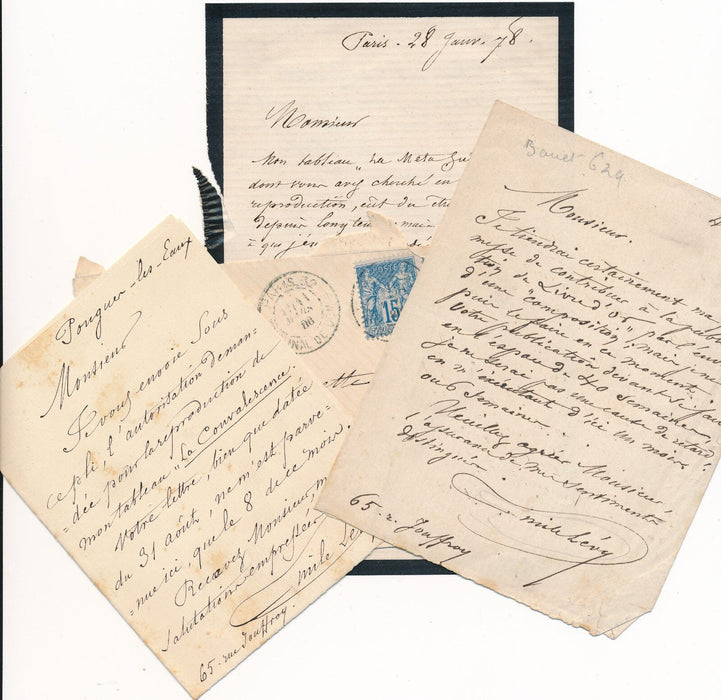 Paris - 28 Janv. 78.
Monsieur
Mon tableau "La Meta
dont vous avez cherché
reproduction, eut du
depuis longtems, mais
à que j'en
POSTE
15
PARIS
Bouet 629
Monsieur.
Je tiendrai certainement ma
messe de contribuer à la publi
tion de Livre d'or, par l'envoi
d'une composition, mais je ne
puis le faire en ce moment.
Votre publication devant s'faire
en l'espace de 40 semaines,
je n'aurai pas une cause de retard
en n'exécutant d'ici un mois
ou 6 semaines.
Veuillez agréer Monsieur,
l'assurance de mes sentiments
distingués
Emile Lévy
65 - r. Jouffroy
Pougues-les-Eaux
Monsieur
Je vous envoie sous
ce pli l'autorisation deman-
=dée pour la reproduction de
mon tableau "La Convalescence.
Votre lettre, bien que datée
du 31 août, ne m'est parve-
=nue ici, que le 8 de ce mois.
Recevez Monsieur, m
salutations empressées
Emile Lé
65 - rue Jouffroy.